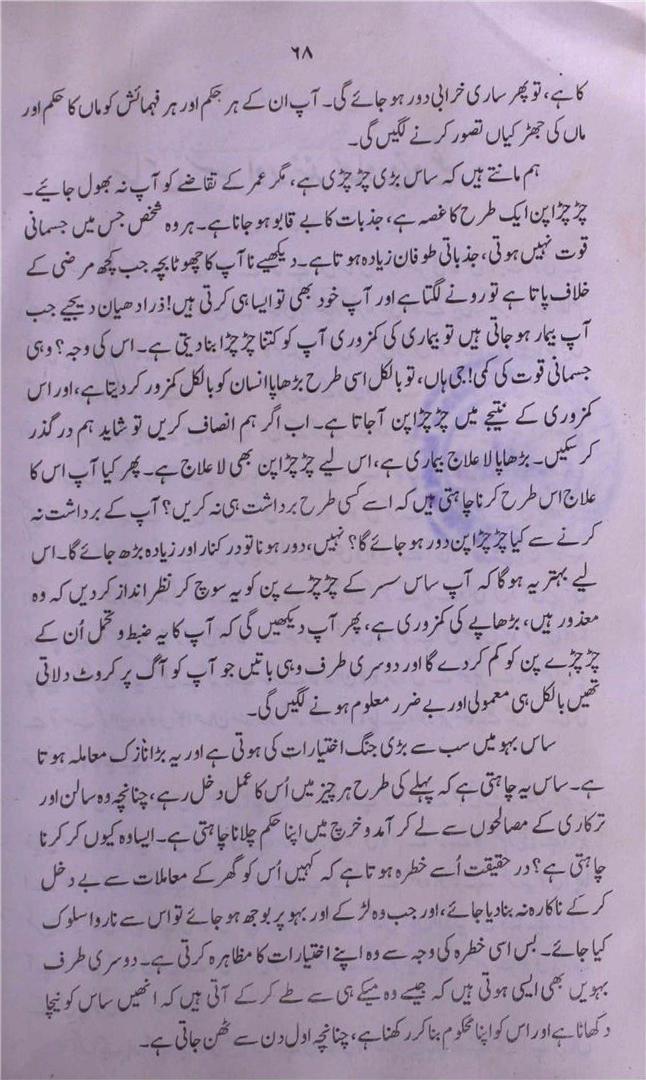 ٦٨
کا ہے، تو پھر ساری خرابی دور ہو جائے گی۔ آپ ان کے ہر حکم اور ہر فہمائش کو ماں کا حکم اور
ماں کی جھڑکیاں تصور کرنے لگیں گی۔
ہم مانتے ہیں کہ ساس بڑی چڑچڑی ہے، مگر عمر کے تقاضے کو آپ نہ بھول جائیے۔
چڑچڑاپن ایک طرح کا غصہ ہے، جذبات کا بے قابو ہو جانا ہے۔ ہر وہ شخص جس میں جسمانی
قوت نہیں ہوتی، جذباتی طوفان زیادہ ہوتا ہے۔ دیکھیے نا آپ کا چھوٹا بچہ جب کچھ مرضی کے
خلاف پاتا ہے تو رونے لگتا ہے اور آپ خود بھی تو ایسا ہی کرتی ہیں! ذرا دھیان دیجیے جب
آپ بیمار ہو جاتی ہیں تو بیماری کی کمزوری آپ کو کتنا چڑچڑا بنا دیتی ہے۔ اس کی وجہ؟ وہی
جسمانی قوت کی کمی! جی ہاں، تو بالکل اسی طرح بڑھاپا انسان کو بالکل کمزور کر دیتا ہے، اور اس
کمزوری کے نتیجے میں چڑچڑاپن آجاتا ہے۔ اب اگر ہم انصاف کریں تو شاید ہم درگذر
کر سکیں۔ بڑھاپا لاعلاج بیماری ہے، اس لیے چڑچڑاپن بھی لاعلاج ہے۔ پھر کیا آپ اس کا
علاج اس طرح کرنا چاہتی ہیں کہ اسے کسی طرح برداشت ہی نہ کریں؟ آپ کے برداشت نہ
کرنے سے کیا چڑچڑاپن دور ہو جائے گا؟ نہیں، دور ہونا تو درکنار اور زیادہ بڑھ جائے گا۔ اس
لیے بہتر یہ ہوگا کہ آپ ساس سسر کے چڑچڑے پن کو یہ سوچ کر نظر انداز کر دیں کہ وہ
معذور ہیں، بڑھاپے کی کمزوری ہے، پھر آپ دیکھیں گی کہ آپ کا یہ ضبط و تحمل اُن کے
چڑچڑے پن کو کم کر دے گا اور دوسری طرف وہی باتیں جو آپ کو آگ پر کروٹ دلاتی
تھیں بالکل ہی معمولی اور بے ضرر معلوم ہونے لگیں گی۔
ساس بہو میں سب سے بڑی جنگ اختیارات کی ہوتی ہے اور یہ بڑا نازک معاملہ ہوتا
ہے۔ ساس یہ چاہتی ہے کہ پہلے کی طرح ہر چیز میں اُس کا عمل دخل رہے، چنانچہ وہ سالن اور
ترکاری کے مصالحوں سے لے کر آمد و خرچ میں اپنا حکم چلانا چاہتی ہے۔ ایسا وہ کیوں کر کرنا
چاہتی ہے؟ در حقیقت اُسے خطرہ ہوتا ہے کہ کہیں اُس کو گھر کے معاملات سے بے دخل
کر کے ناکارہ نہ بنا دیا جائے، اور جب وہ لڑکے اور بہو پر بوجھ ہو جائے تو اس سے ناروا سلوک
کیا جائے۔ بس اسی خطرہ کی وجہ سے وہ اپنے اختیارات کا مظاہرہ کرتی ہے۔ دوسری طرف
بہویں بھی ایسی ہوتی ہیں کہ جیسے وہ میکے ہی سے طے کر کے آتی ہیں کہ انھیں ساس کو نیچا
دکھانا ہے اور اس کو اپنا محکوم بنا کر رکھنا ہے، چنانچہ اول دن سے ٹھن جاتی ہے۔